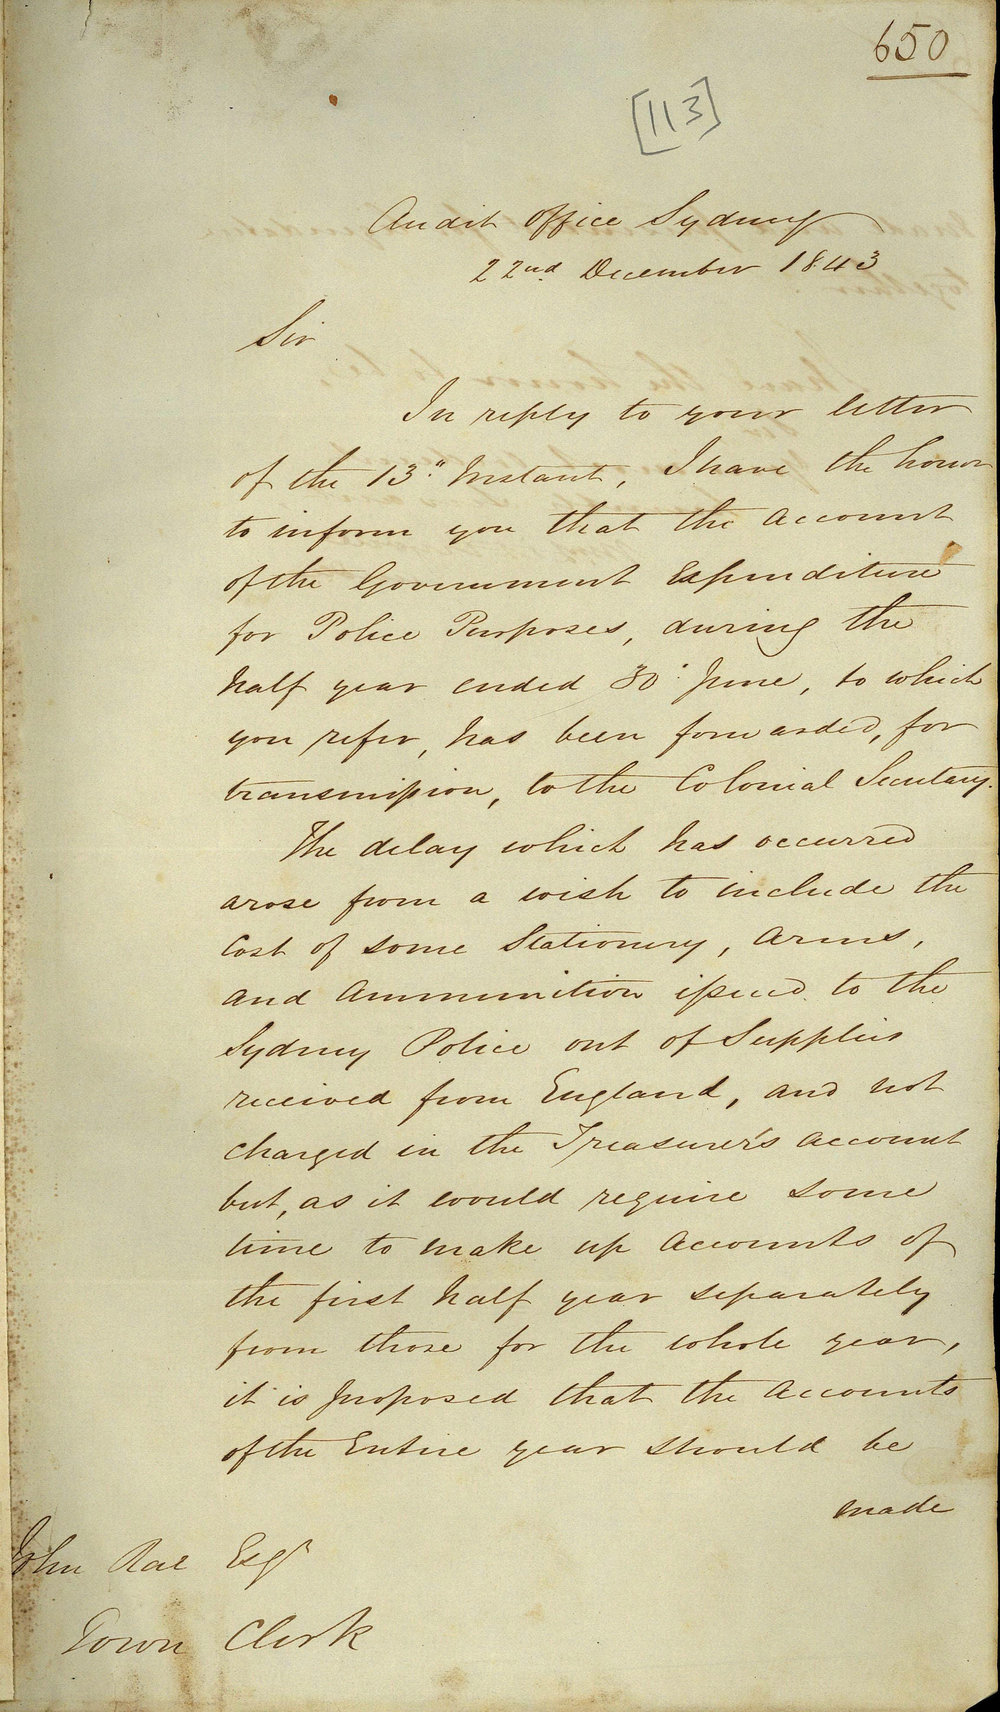 650
[113]
Audit Office Sydney
22nd December 1843
Sir
In reply to your letter
of the 13" Instant, I have the honor
to inform you that the Account
of the Government Expenditure
for Police Purposes, during the
half year ended 30" June, to which
you refer, has been forwarded, for
transmission, to the Colonial Secretary.
The delay which has occurred
arose from a wish to include the
Cost of some Stationery, Arms,
and Ammunition issued to the
Sydney Police out of Supplies
received from England, and not
charged in the Treasurer's Account
but, as it would require some
time to make up Accounts of
the first half year separately
from those for the whole year,
it is proposed that the Accounts
of the Entire year should be
made
John Rae Esqr
Town Clerk